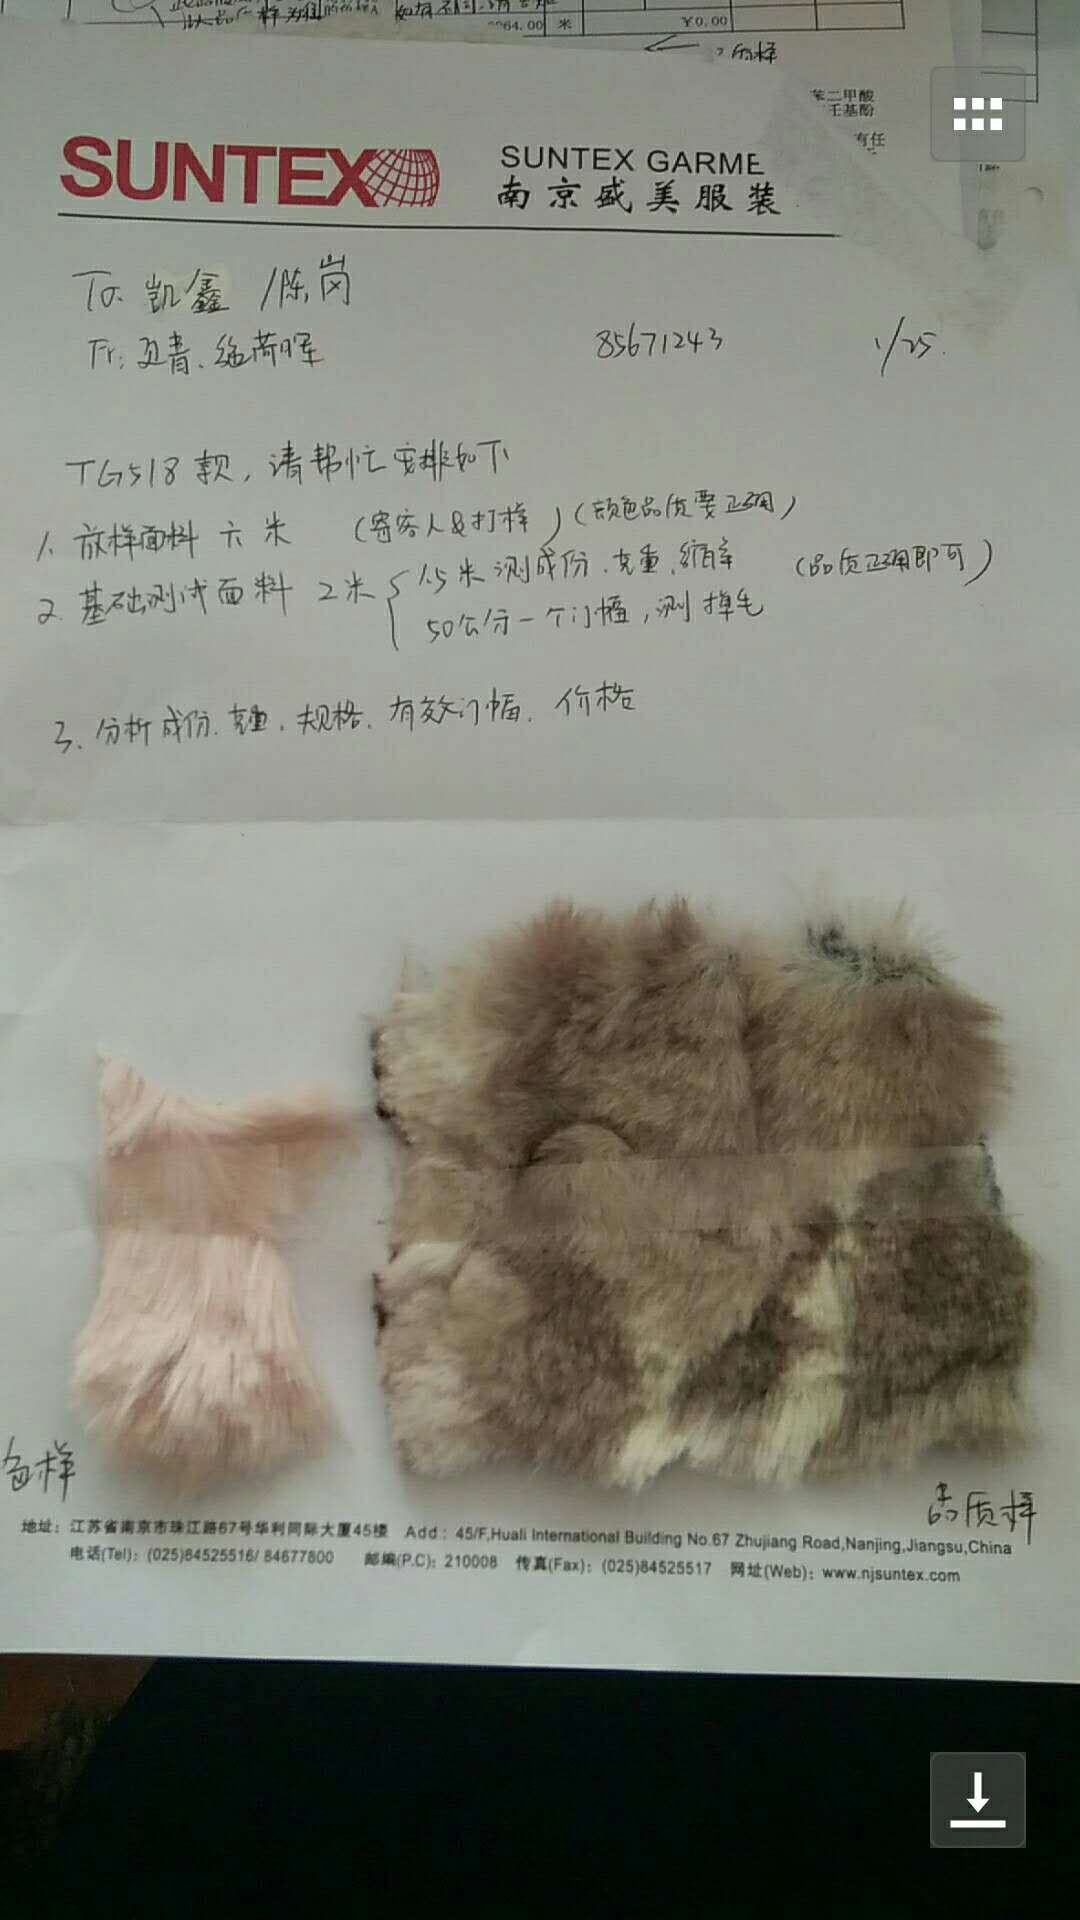 64.00 米 ¥0.00
苯二甲酸
壬基酚
有任
SUNTEX
SUNTEX GARME
南京盛美服装
To. 凯鑫 /陈岗
Fr: 85671243 1/25.
TG518款, 请帮忙安排如下
1. 放样面料 六米 (寄客人&打样) (颜色品质要正确)
2. 基础测试面料 2米 { 1.5米 测成份、克重、缩率 (品质正确即可)
50公分一个门幅, 测掉毛
3. 分析成份、克重、规格、有效门幅、价格
色样
品质样
地址: 江苏省南京市珠江路67号华利国际大厦45楼 Add: 45/F,Huali International Building No.67 Zhujiang Road,Nanjing,Jiangsu,China
电话(Tel): (025)84525516/ 84677800 邮编(P.C): 210008 传真(Fax): (025)84525517 网址(Web): www.njsuntex.com